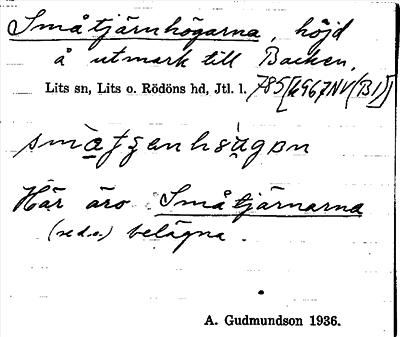 Småtjärnhögarna, höjd
å utmark till Backen,
Lits sn, Lits o. Rödöns hd, Jtl. l.
Här äro Småtjärnarna
(se d.o.) belägna.
A. Gudmundson 1936.